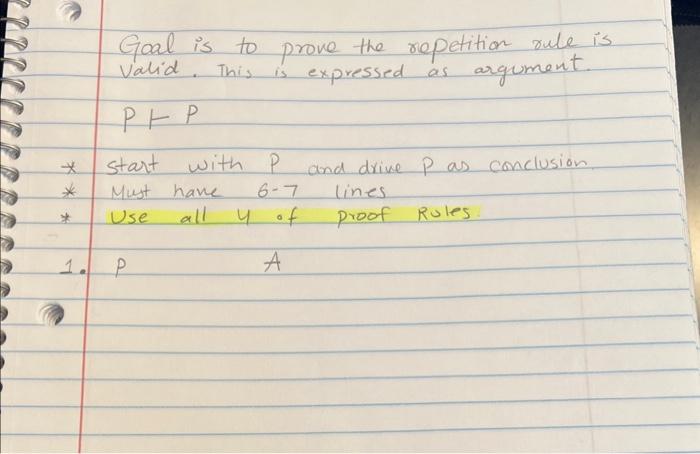 Goal is to prove the repetition rule is
Valid. This is expressed as argument.
P ⊢ P
* start with P and drive P as conclusion
* Must have 6-7 lines
* Use all 4 of Proof Rules.
1. P A